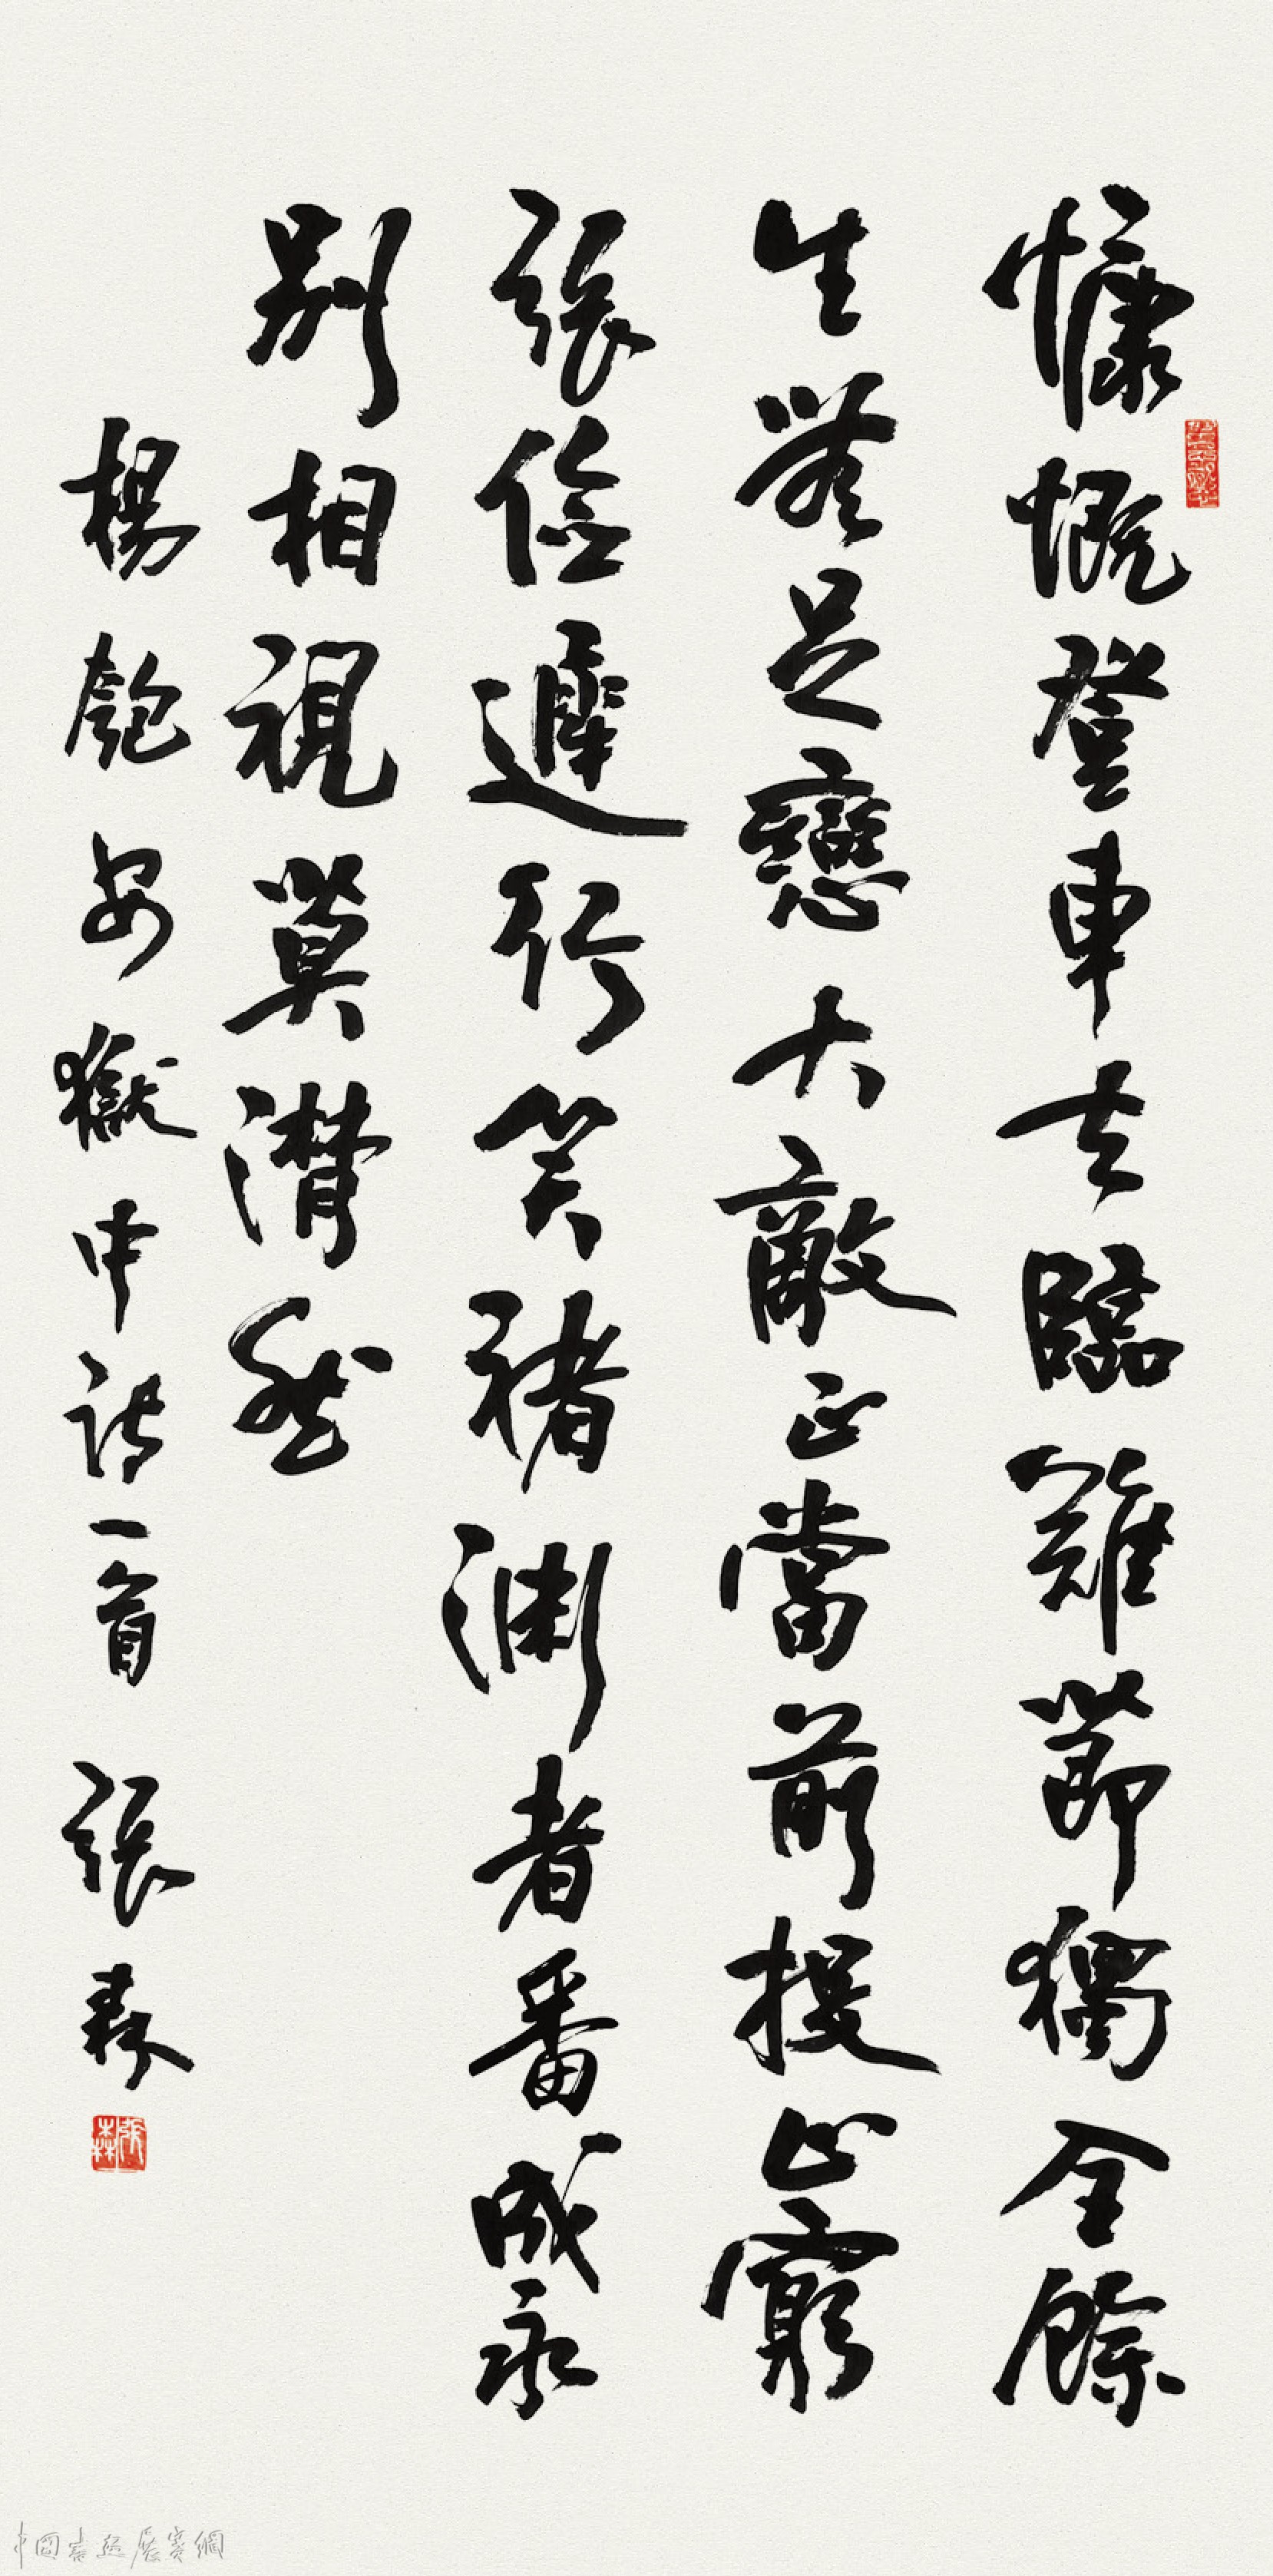 慷慨登車去臨難節獨全餘
生無足戀大敵正當前投止窮
張儉遲行笑褚淵者番成永
別相視莫潸然
楊匏安獄中詩一首 張森
張森
中國書法展賽網